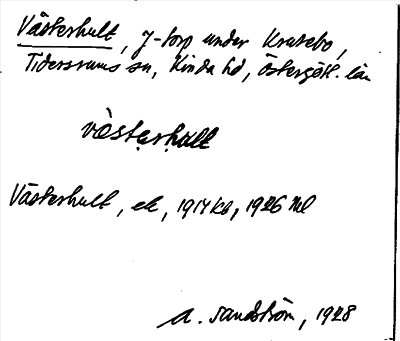 Västerhult, j-torp under Kratebo,
Tidersrums sn, Kinda hd, Östergötl. län
västerhult
Västerhult, ek, 1917 kb, 1926 ml
A. Sandström, 1928